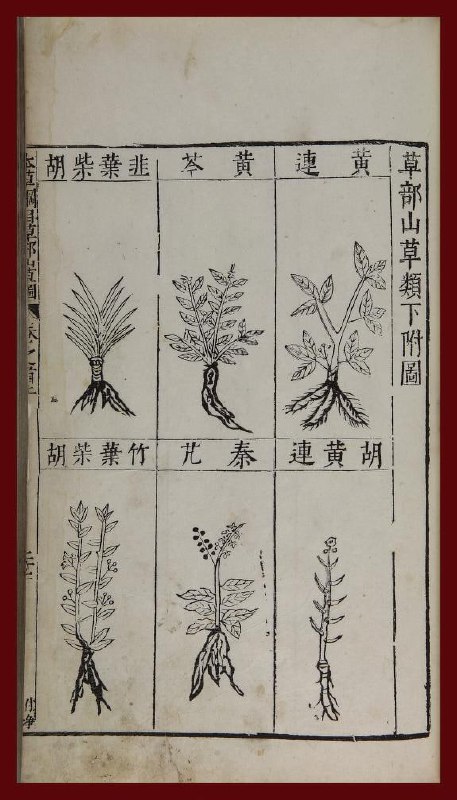 草部山草類下附圖
黄連
黄芩
韭葉柴胡
胡黄連
秦艽
竹葉柴胡
本草綱目草部山草圖